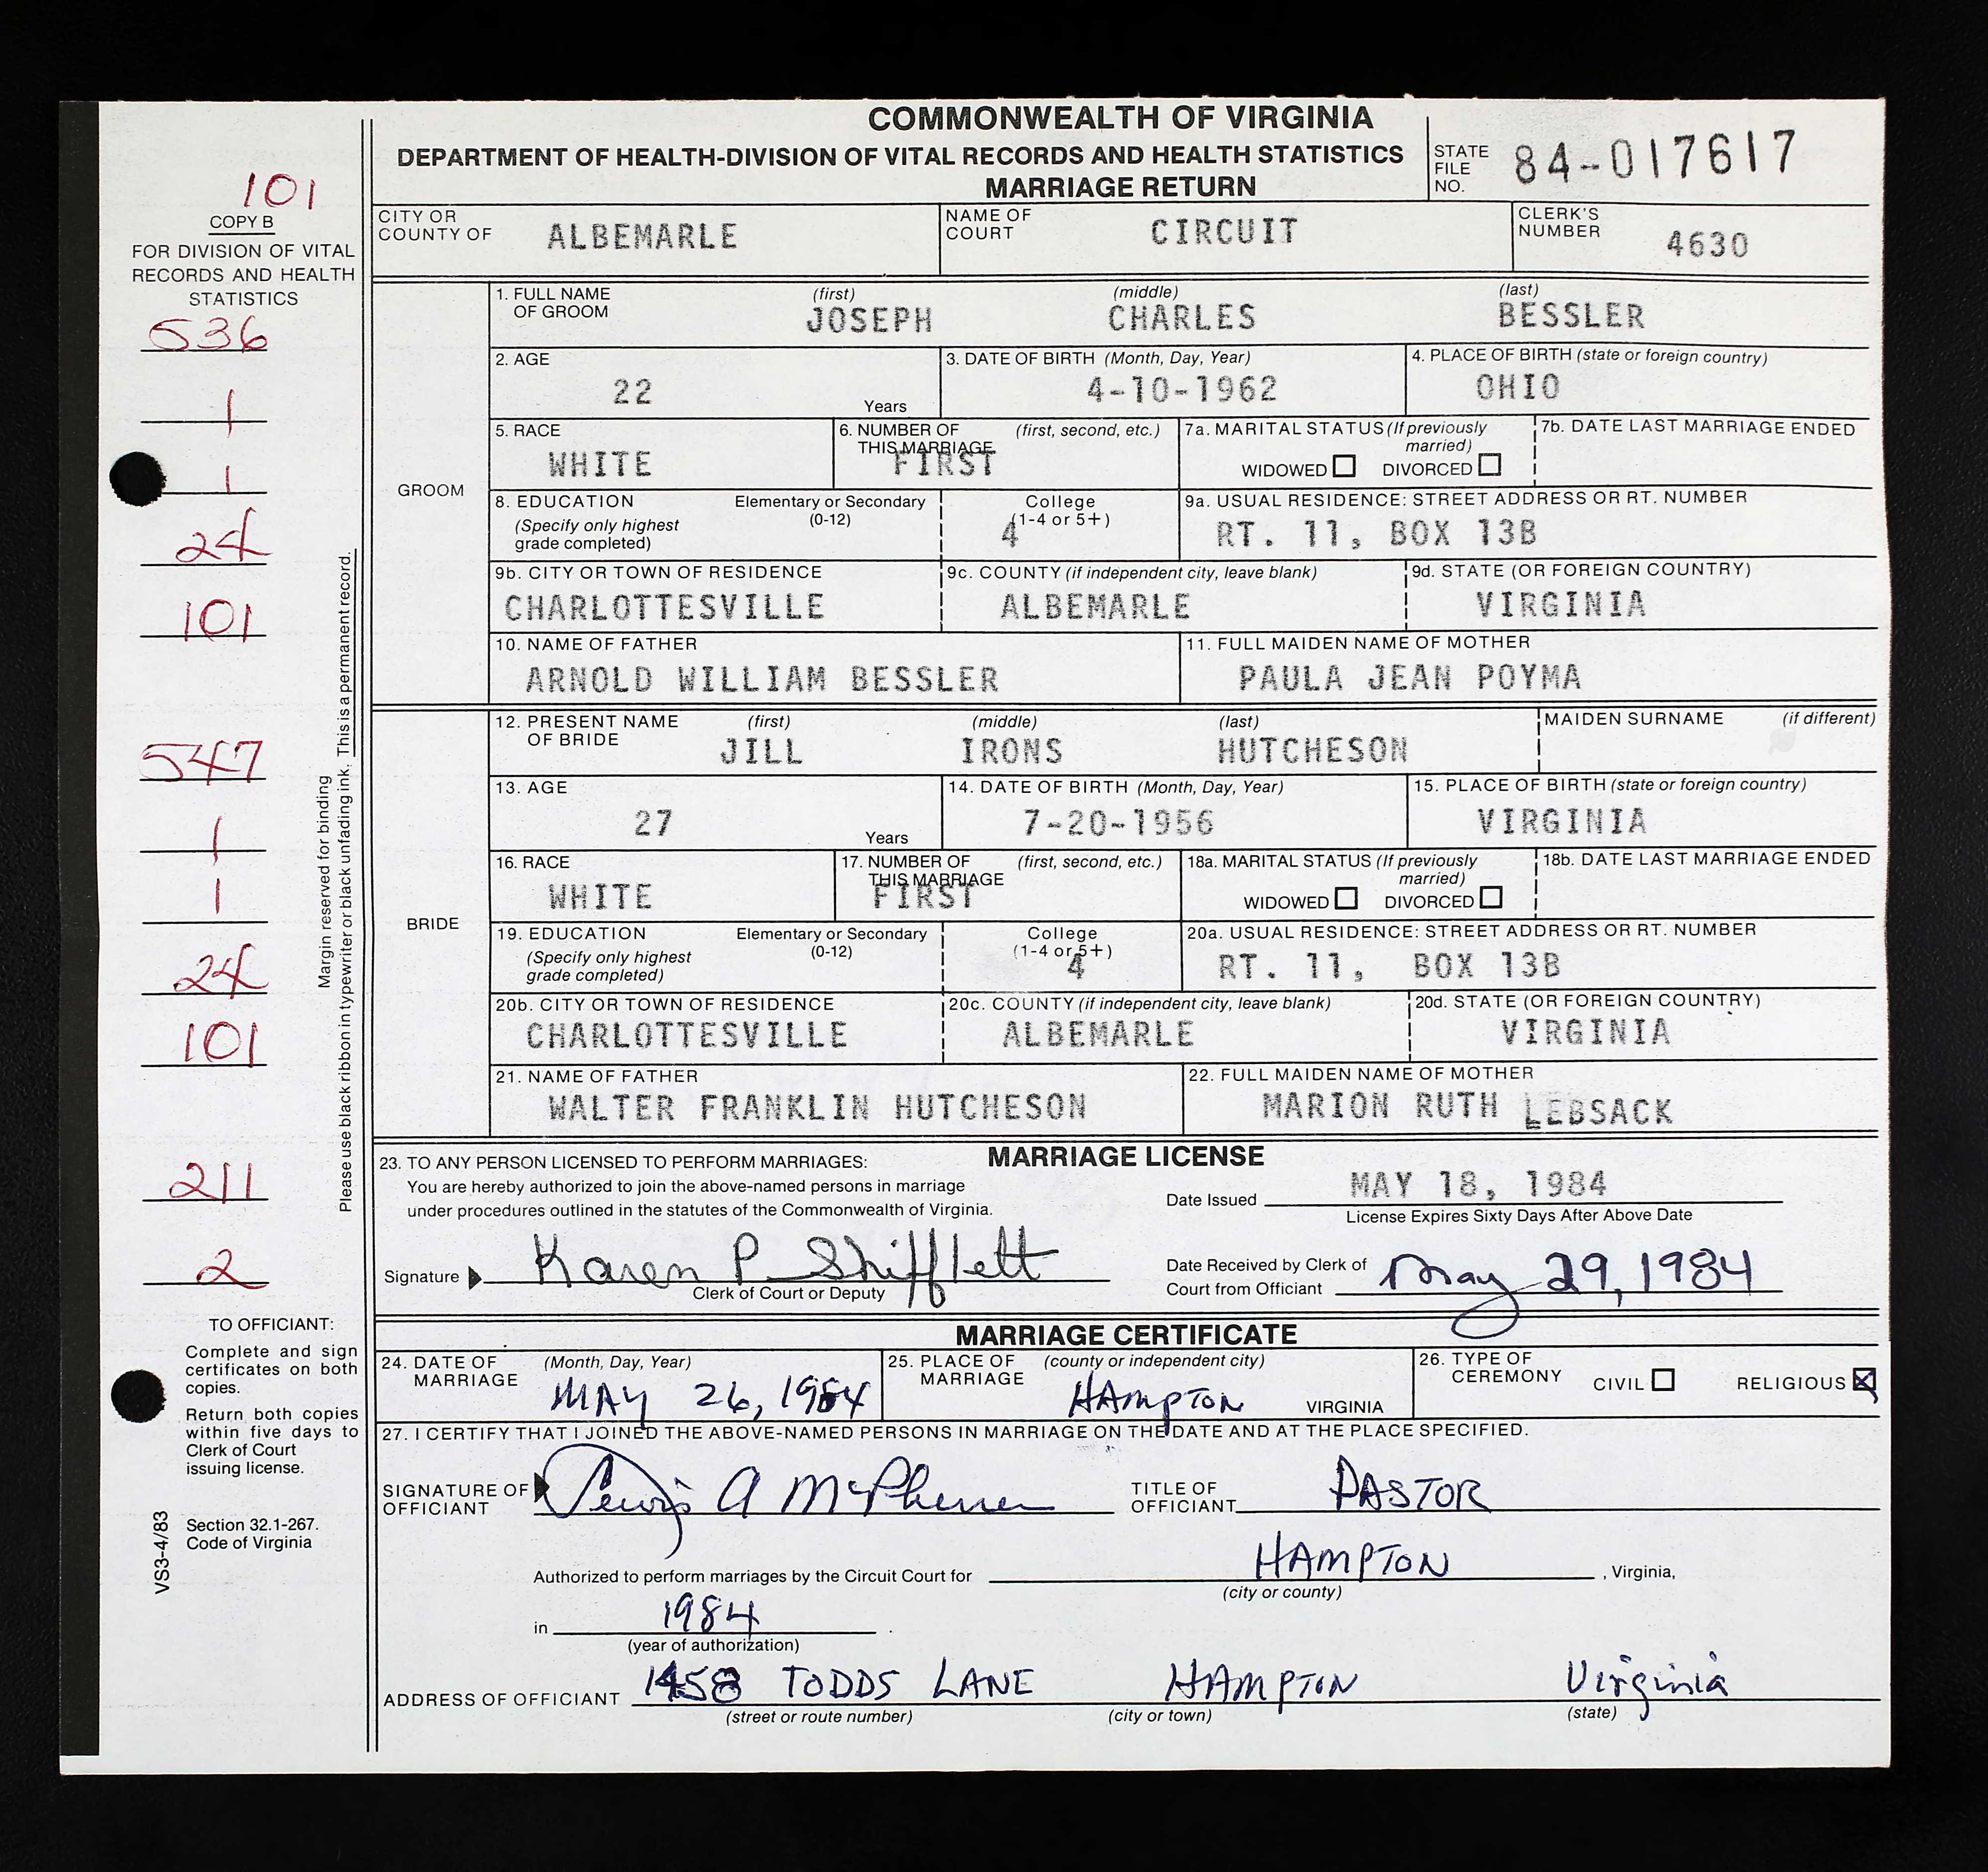 COMMONWEALTH OF VIRGINIA
DEPARTMENT OF HEALTH-DIVISION OF VITAL RECORDS AND HEALTH STATISTICS
MARRIAGE RETURN
STATE FILE NO. 84-017617
101
COPY B
FOR DIVISION OF VITAL
RECORDS AND HEALTH
STATISTICS
536
1
1
24
101
547
1
1
24
101
211
2
Margin reserved for binding
Please use black ribbon in typewriter or black unfading ink. This is a permanent record.
TO OFFICIANT:
Complete and sign
certificates on both
copies.
Return both copies
within five days to
Clerk of Court
issuing license.
Section 32.1-267.
Code of Virginia
VS3-4/83
CITY OR COUNTY OF ALBEMARLE
NAME OF COURT CIRCUIT
CLERK'S NUMBER 4630
GROOM
1. FULL NAME OF GROOM (first) (middle) (last)
JOSEPH CHARLES BESSLER
2. AGE 22 Years
3. DATE OF BIRTH (Month, Day, Year) 4-10-1962
4. PLACE OF BIRTH (state or foreign country) OHIO
5. RACE WHITE
6. NUMBER OF THIS MARRIAGE (first, second, etc.) FIRST
7a. MARITAL STATUS (If previously married) WIDOWED DIVORCED
7b. DATE LAST MARRIAGE ENDED
8. EDUCATION (Specify only highest grade completed) Elementary or Secondary (0-12) College (1-4 or 5+) 4
9a. USUAL RESIDENCE: STREET ADDRESS OR RT. NUMBER RT. 11, BOX 13B
9b. CITY OR TOWN OF RESIDENCE CHARLOTTESVILLE
9c. COUNTY (if independent city, leave blank) ALBEMARLE
9d. STATE (OR FOREIGN COUNTRY) VIRGINIA
10. NAME OF FATHER ARNOLD WILLIAM BESSLER
11. FULL MAIDEN NAME OF MOTHER PAULA JEAN POYMA
BRIDE
12. PRESENT NAME OF BRIDE (first) (middle) (last) MAIDEN SURNAME (if different)
JILL IRONS HUTCHESON
13. AGE 27 Years
14. DATE OF BIRTH (Month, Day, Year) 7-20-1956
15. PLACE OF BIRTH (state or foreign country) VIRGINIA
16. RACE WHITE
17. NUMBER OF THIS MARRIAGE (first, second, etc.) FIRST
18a. MARITAL STATUS (If previously married) WIDOWED DIVORCED
18b. DATE LAST MARRIAGE ENDED
19. EDUCATION (Specify only highest grade completed) Elementary or Secondary (0-12) College (1-4 or 5+) 4
20a. USUAL RESIDENCE: STREET ADDRESS OR RT. NUMBER RT. 11, BOX 13B
20b. CITY OR TOWN OF RESIDENCE CHARLOTTESVILLE
20c. COUNTY (if independent city, leave blank) ALBEMARLE
20d. STATE (OR FOREIGN COUNTRY) VIRGINIA
21. NAME OF FATHER WALTER FRANKLIN HUTCHESON
22. FULL MAIDEN NAME OF MOTHER MARION RUTH LEBSACK
MARRIAGE LICENSE
23. TO ANY PERSON LICENSED TO PERFORM MARRIAGES:
You are hereby authorized to join the above-named persons in marriage
under procedures outlined in the statutes of the Commonwealth of Virginia.
Date Issued MAY 18, 1984
License Expires Sixty Days After Above Date
Signature Karen P Shifflett
Clerk of Court or Deputy
Date Received by Clerk of Court from Officiant May 29, 1984
MARRIAGE CERTIFICATE
24. DATE OF MARRIAGE (Month, Day, Year) MAY 26, 1984
25. PLACE OF MARRIAGE (county or independent city) HAMPTON VIRGINIA
26. TYPE OF CEREMONY CIVIL RELIGIOUS X
27. I CERTIFY THAT I JOINED THE ABOVE-NAMED PERSONS IN MARRIAGE ON THE DATE AND AT THE PLACE SPECIFIED.
SIGNATURE OF OFFICIANT A
TITLE OF OFFICIANT PASTOR
Authorized to perform marriages by the Circuit Court for HAMPTON , Virginia,
(city or county)
in 1984 .
(year of authorization)
ADDRESS OF OFFICIANT 1458 TODDS LANE HAMPTON Virginia
(street or route number) (city or town) (state)